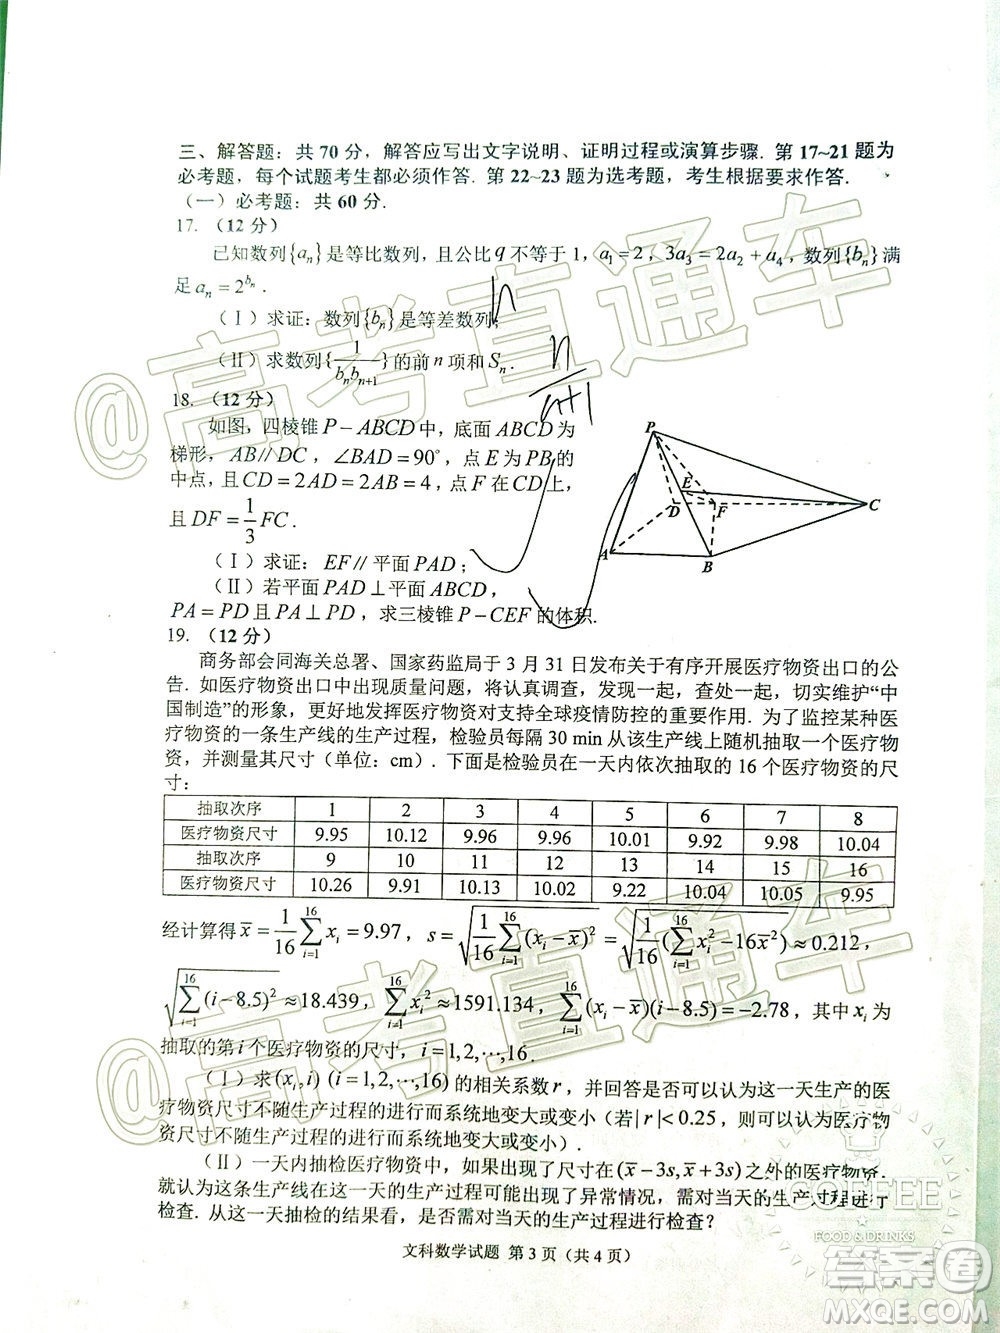 三、解答题：共 70 分，解答应写出文字说明、证明过程或演算步骤. 第 17~21 题为
必考题，每个试题考生都必须作答. 第 22~23 题为选考题，考生根据要求作答.
（一）必考题：共 60 分.
17. （12 分）
已知数列{aₙ}是等比数列，且公比 q 不等于 1，a₁=2，3a₃=2a₂+a₄，数列{bₙ}满
足 aₙ=2^{bₙ}．
（Ⅰ）求证：数列{bₙ}是等差数列；
（Ⅱ）求数列{1/(bₙbₙ₊₁)}的前 n 项和 Sₙ．
n
n/(n+1)
18. （12 分）
如图，四棱锥 P－ABCD 中，底面 ABCD 为
梯形，AB//DC，∠BAD=90°，点 E 为 PB 的
中点，且 CD=2AD=2AB=4，点 F 在 CD 上，
且 DF=1/3 FC．
（Ⅰ）求证：EF//平面 PAD；
（Ⅱ）若平面 PAD⊥平面 ABCD，
PA=PD 且 PA⊥PD，求三棱锥 P－CEF 的体积.
P
E
D
F
C
A
B
19. （12 分）
商务部会同海关总署、国家药监局于 3 月 31 日发布关于有序开展医疗物资出口的公
告. 如医疗物资出口中出现质量问题，将认真调查，发现一起，查处一起，切实维护“中
国制造”的形象，更好地发挥医疗物资对支持全球疫情防控的重要作用. 为了监控某种医
疗物资的一条生产线的生产过程，检验员每隔 30 min 从该生产线上随机抽取一个医疗物
资，并测量其尺寸（单位：cm）. 下面是检验员在一天内依次抽取的 16 个医疗物资的尺
寸：
抽取次序 1 2 3 4 5 6 7 8
医疗物资尺寸 9.95 10.12 9.96 9.96 10.01 9.92 9.98 10.04
抽取次序 9 10 11 12 13 14 15 16
医疗物资尺寸 10.26 9.91 10.13 10.02 9.22 10.04 10.05 9.95
经计算得 x̄=1/16 ∑_{i=1}^{16} xᵢ=9.97，s=√(1/16 ∑_{i=1}^{16}(xᵢ-x̄)²)=√(1/16(∑_{i=1}^{16}xᵢ²-16x̄²))≈0.212，
√(∑_{i=1}^{16}(i-8.5)²)≈18.439，∑_{i=1}^{16}xᵢ²≈1591.134，∑_{i=1}^{16}(xᵢ-x̄)(i-8.5)=-2.78，其中 xᵢ 为
抽取的第 i 个医疗物资的尺寸，i=1,2,⋯,16.
（Ⅰ）求(xᵢ,i) (i=1,2,⋯,16)的相关系数 r，并回答是否可以认为这一天生产的医
疗物资尺寸不随生产过程的进行而系统地变大或变小（若|r|<0.25，则可以认为医疗物
资尺寸不随生产过程的进行而系统地变大或变小）.
（Ⅱ）一天内抽检医疗物资中，如果出现了尺寸在(x̄-3s,x̄+3s)之外的医疗物资，
就认为这条生产线在这一天的生产过程可能出现了异常情况，需对当天的生产过程进行
检查. 从这一天抽检的结果看，是否需对当天的生产过程进行检查？
文科数学试题 第 3 页（共 4 页）
@高考直通车
@高考直通车
COFFEE
FOOD & DRINKS
答案圈
MXQE.COM